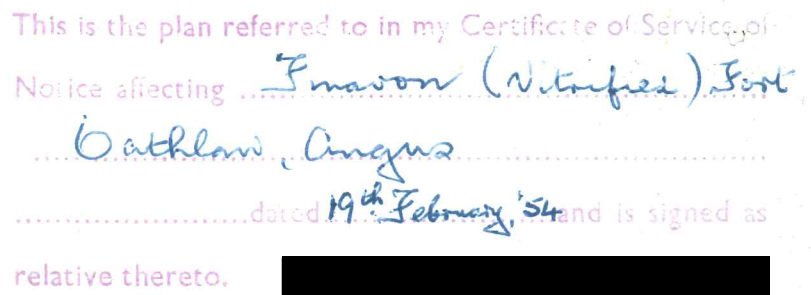 This is the plan referred to in my Certificate of Service of
Notice affecting Finavon (Vitrified) Fort
Oathlaw, Angus
dated 19th February, '54 and is signed as
relative thereto.